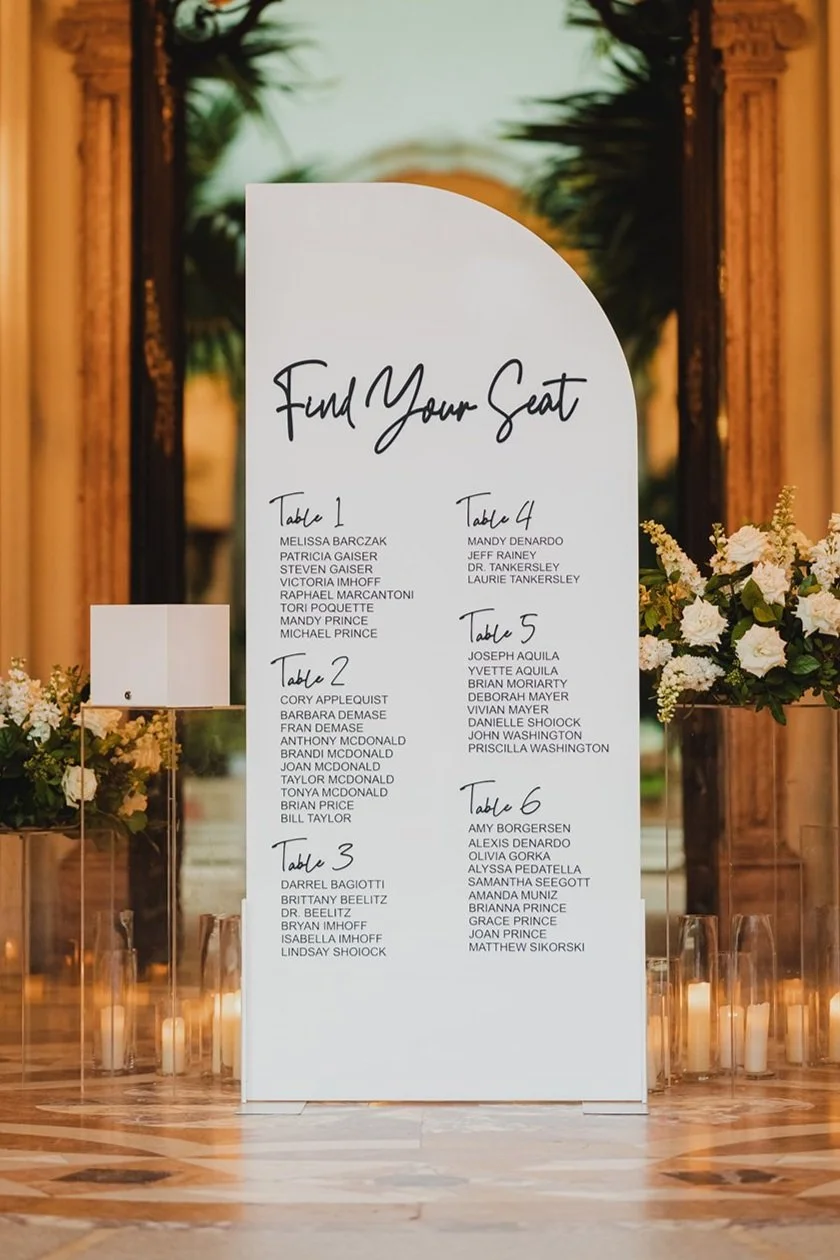 Find Your Seat
Table 1
MELISSA BARCZAK
PATRICIA GAISER
STEVEN GAISER
VICTORIA IMHOFF
RAPHAEL MARCANTONI
TORI POQUETTE
MANDY PRINCE
MICHAEL PRINCE
Table 2
CORY APPLEQUIST
BARBARA DEMASE
FRAN DEMASE
ANTHONY MCDONALD
BRANDI MCDONALD
JOAN MCDONALD
TAYLOR MCDONALD
TONYA MCDONALD
BRIAN PRICE
BILL TAYLOR
Table 3
DARREL BAGIOTTI
BRITTANY BEELITZ
DR. BEELITZ
BRYAN IMHOFF
ISABELLA IMHOFF
LINDSAY SHOIOCK
Table 4
MANDY DENARDO
JEFF RAINEY
DR. TANKERSLEY
LAURIE TANKERSLEY
Table 5
JOSEPH AQUILA
YVETTE AQUILA
BRIAN MORIARTY
DEBORAH MAYER
VIVIAN MAYER
DANIELLE SHOIOCK
JOHN WASHINGTON
PRISCILLA WASHINGTON
Table 6
AMY BORGERSEN
ALEXIS DENARDO
OLIVIA GORKA
ALYSSA PEDATELLA
SAMANTHA SEEGOTT
AMANDA MUNIZ
BRIANNA PRINCE
GRACE PRINCE
JOAN PRINCE
MATTHEW SIKORSKI